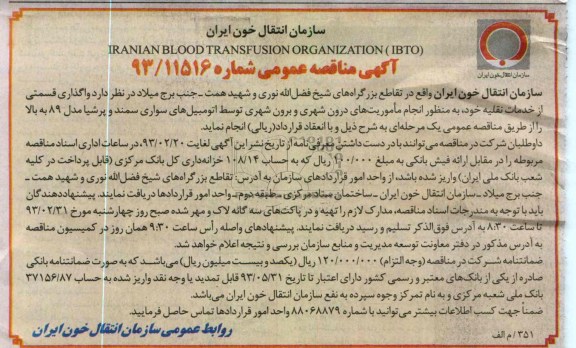 سازمان انتقال خون ایران
IRANIAN BLOOD TRANSFUSION ORGANIZATION ( IBTO)
آگهی مناقصه عمومی شماره ۹۳/۱۱۵۱۶
سازمان انتقال خون ایران
سازمان انتقال خون ایران واقع در تقاطع بزرگراه‌های شیخ فضل‌الله نوری و شهید همت ـ جنب برج میلاد در نظر دارد واگذاری قسمتی
از خدمات نقلیه خود، به منظور انجام مأموریت‌های درون شهری و برون شهری توسط اتومبیل‌های سواری سمند و پرشیا مدل ۸۹ به بالا
را از طریق مناقصه عمومی یک مرحله‌ای به شرح ذیل و با انعقاد قرارداد(ریالی) انجام نماید.
داوطلبان شرکت در مناقصه می‌توانند با در دست داشتن معرفی نامه از تاریخ نشر این آگهی لغایت ۹۳/۰۲/۲۰، در ساعات اداری اسناد مناقصه
مربوطه را در مقابل ارائه فیش بانکی به مبلغ ریال که به حساب ۱۰۸/۱۴ خزانه‌داری کل بانک مرکزی (قابل پرداخت در کلیه
شعب بانک ملی ایران) واریز شده باشد، از واحد امور قراردادهای سازمان به آدرس: تقاطع بزرگراه‌های شیخ فضل‌الله نوری و شهید همت ـ
جنب برج میلاد ـ سازمان انتقال خون ایران ـ ساختمان ستاد مرکزی ـ طبقه دوم ـ واحد امور قراردادها دریافت نمایند. پیشنهاددهندگان
باید با توجه به مندرجات اسناد مناقصه، مدارک لازم را تهیه و در پاکت‌های سه گانه لاک و مهر شده صبح روز چهارشنبه مورخ ۹۳/۰۲/۳۱
تا ساعت ۸:۳۰ به آدرس فوق‌الذکر تسلیم و رسید دریافت نمایند. پیشنهادهای واصله رأس ساعت ۹:۳۰ همان روز در کمیسیون مناقصه
به آدرس مذکور در دفتر معاونت توسعه مدیریت و منابع سازمان بررسی و نتیجه اعلام خواهد شد.
ضمانتنامه شرکت در مناقصه (وجه التزام) ۱۲۰/۰۰۰/۰۰۰ ریال (یکصد و بیست میلیون ریال) می‌باشد که به صورت ضمانتنامه بانکی
صادره از یکی از بانک‌های معتبر و رسمی کشور دارای اعتبار تا تاریخ ۹۳/۰۵/۳۱ قابل تمدید یا وجه نقد واریز شده به حساب ۳۷۱۵۶/۸۷
بانک ملی شعبه مرکزی و به نام تمرکز وجوه سپرده به نفع سازمان انتقال خون ایران می‌باشد.
ضمناً جهت کسب اطلاعات بیشتر می‌توانید با شماره ۸۸۰۶۸۸۷۹ واحد امور قراردادها تماس حاصل فرمایید.
روابط عمومی سازمان انتقال خون ایران
۳۵۱ / م الف